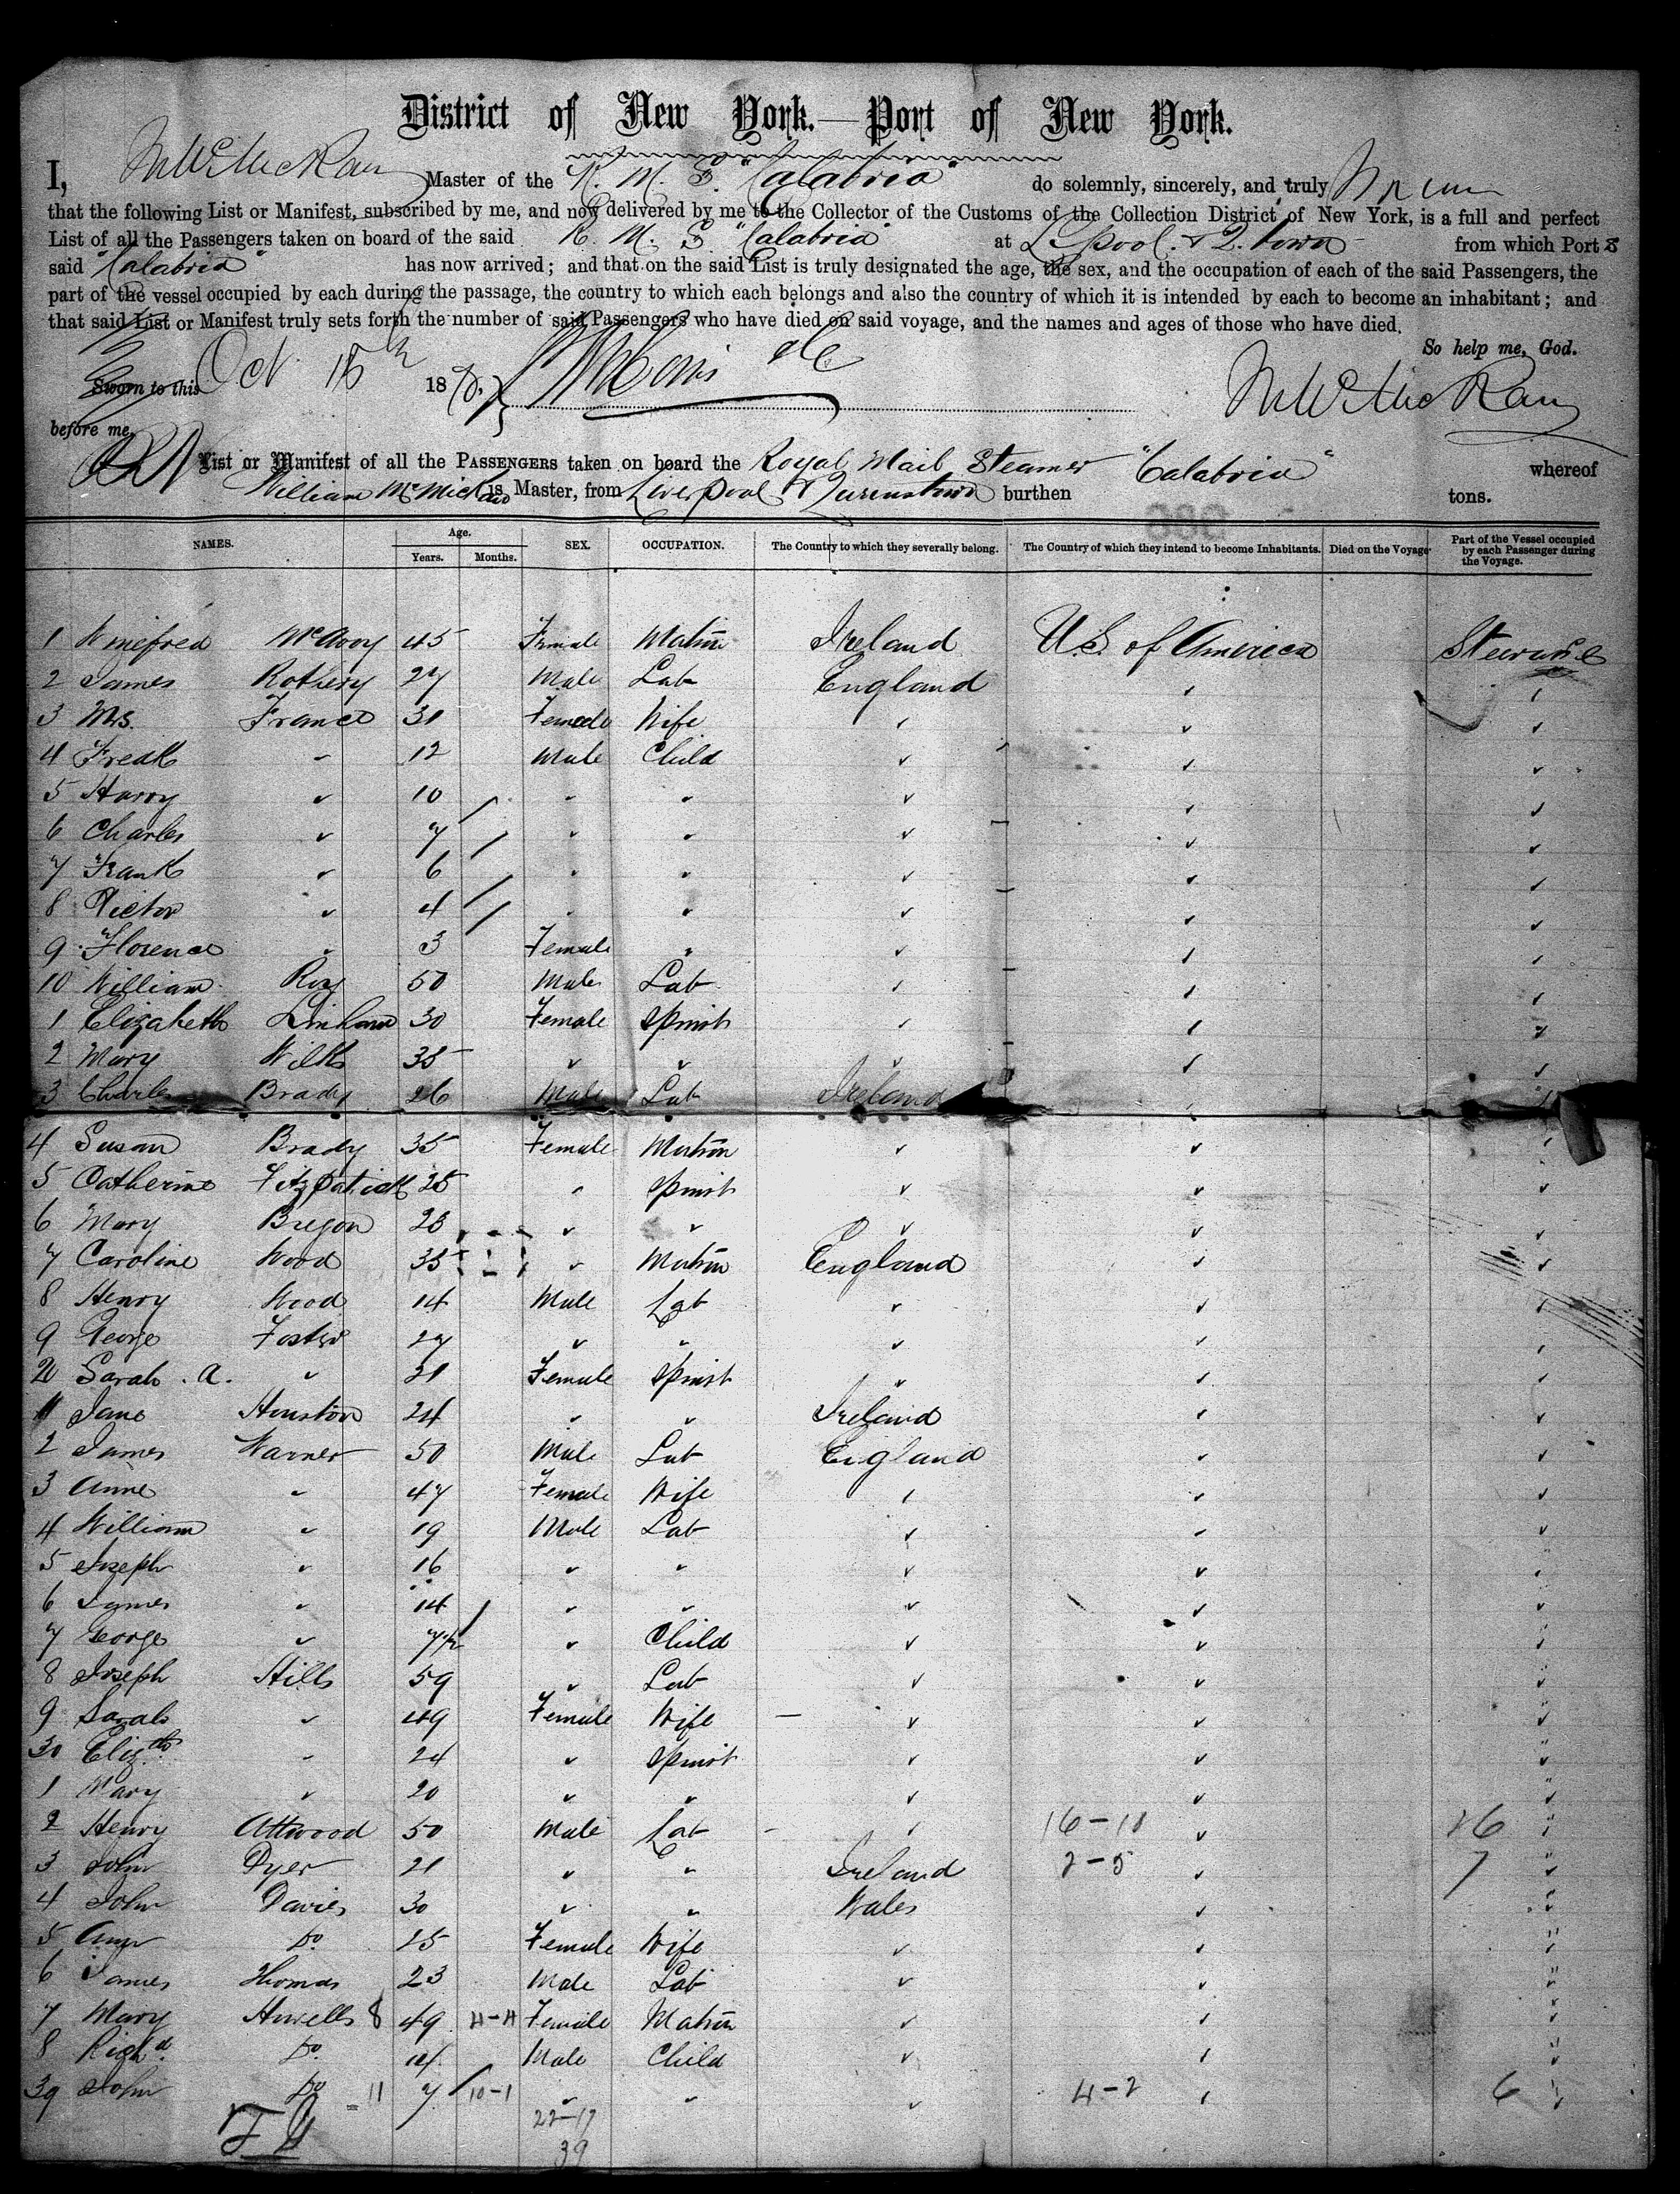 District of New York.—Port of New York.
I, Master of the R. M. S. "Calabria" do solemnly, sincerely, and truly
that the following List or Manifest, subscribed by me, and now delivered by me to the Collector of the Customs of the Collection District of New York, is a full and perfect
List of all the Passengers taken on board of the said R. M. S. "Calabria" at L'pool & Q. town from which Port
said "Calabria" has now arrived; and that on the said List is truly designated the age, the sex, and the occupation of each of the said Passengers, the
part of the vessel occupied by each during the passage, the country to which each belongs and also the country of which it is intended by each to become an inhabitant; and
that said List or Manifest truly sets forth the number of said Passengers who have died on said voyage, and the names and ages of those who have died.
So help me, God.
Sworn to this Oct 15th 18
before me,
List or Manifest of all the PASSENGERS taken on board the Royal Mail Steamer "Calabria" whereof
William McMickan is Master, from Liverpool & Queenstown burthen tons.
NAMES. Age. Years. Months. SEX. OCCUPATION. The Country to which they severally belong. The Country of which they intend to become Inhabitants. Died on the Voyage Part of the Vessel occupied by each Passenger during the Voyage.
1 Winefred McAvoy 45 Female Matron Ireland U.S. of America Steerage
2 James Rothery 27 Male Lab England
3 Mrs. France 31 Female Wife
4 Fredk 12 Male Child
5 Harry 10
6 Charles 7
7 Frank 6
8 Victor 4
9 Florence 3 Female
10 William Roy 50 Male Lab
1 Elizabeth 30 Female Spinst
2 Mary Wilks 35
3 Charles Brady 26 Male Lab Ireland
4 Susan Brady 35 Female Matron
5 Catherine Fitzpatrick 25 Spinst
6 Mary 23
7 Caroline Wood 35 Matron England
8 Henry Wood 14 Male Lab
9 George Foster 27
20 Sarah . A. 31 Female Spinst
1 Jane Houston 24 Ireland
2 James Warner 50 Male Lab England
3 Anne 47 Female Wife
4 William 19 Male Lab
5 Joseph 16
6 James 14
7 George Child
8 Joseph Hills 59 Lab
9 Sarah 49 Female Wife
30 Elizth 24 Spinst
1 Mary 20
2 Henry Attwood 50 Male Lab 16-10 26
3 John Dyer 21 Ireland 2-5 7
4 John Davies 30 Wales
5 Ann Do 25 Female Wife
6 James Thomas 23 Male Lab
7 Mary Howells 8 49 11-11 Female Matron
8 Richd Do Male Child
39 John Do 11 7 10-1 4-2 6
22-17
39